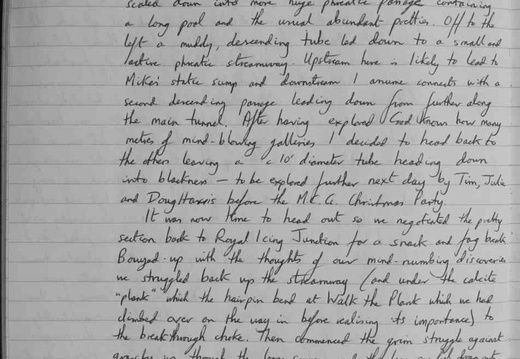 scaled down into more huge phreatic passage containing
a long pool and the usual abundant pretties. Off to the
left a muddy, descending tube led down to a small and
active phreatic streamway. Upstream here is likely to lead to
Mike's static sump and downstream I assume connects with a
second descending passage leading down from further along
the main tunnel. After having explored God knows how many
metres of mind-blowing galleries I decided to head back to
the others leaving a c 10' diameter tube heading down
into blackness - to be explored further next day by Tim, Julie
and Doug Harris before the M.C.G. Christmas Party.
It was now time to head out so we negotiated the pretty
section back to Royal Icing Junction for a snack and fag break.
Bouyed-up with the thoughts of our mind-numbing discoveries
we struggled back up the streamway (and under the calcite
"plank" which the hairpin bend at Walk the Plank which we had
climbed over on the way in before realising its importance) to
the breakthrough choke. Then commenced the grim struggle against
up through the